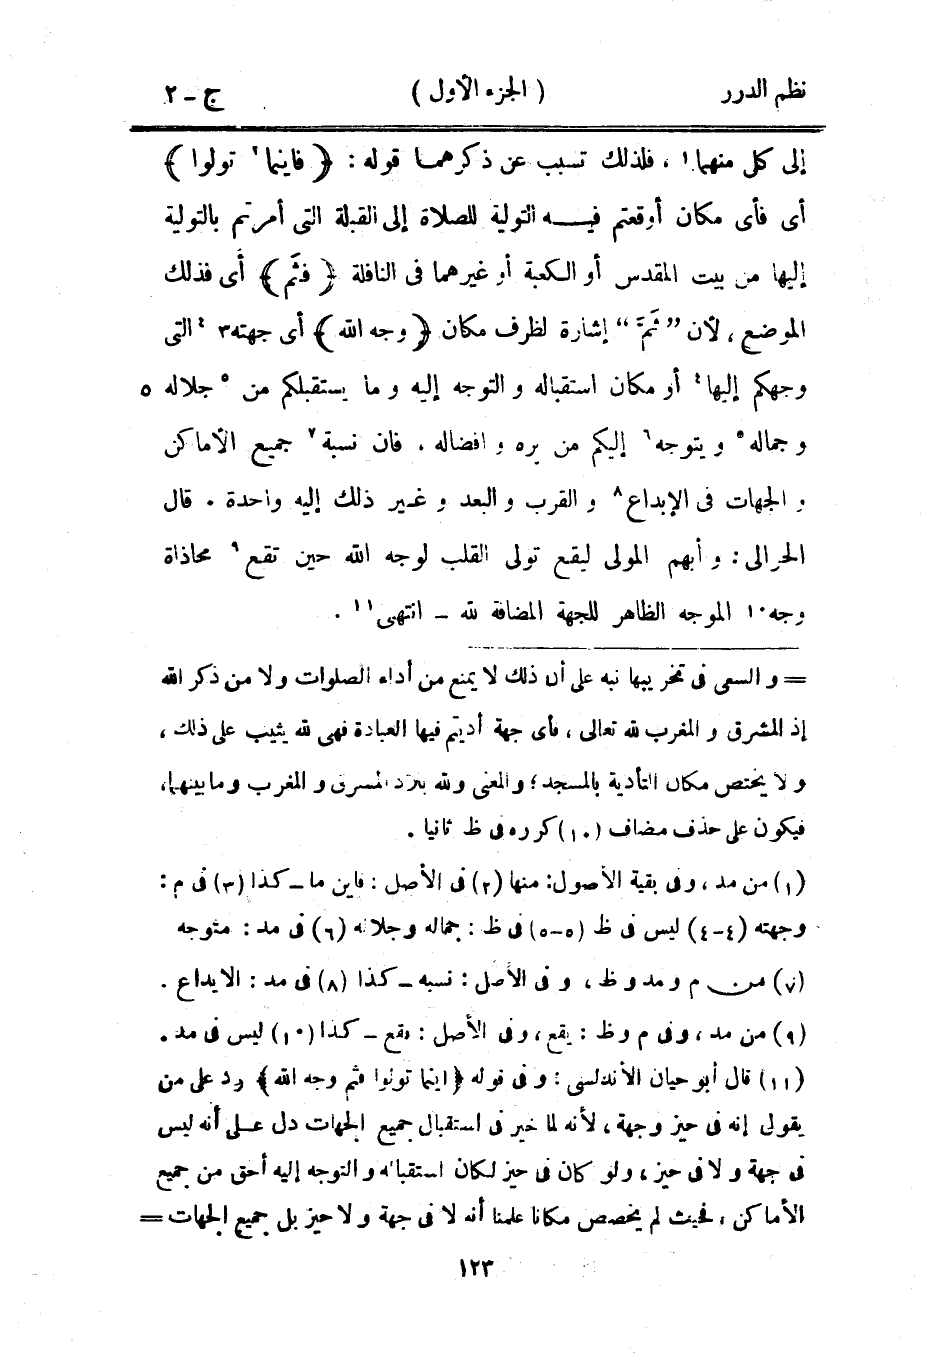 نظم الدرر ( الجزء الأول ) ج - ٢
إلى كل منهما١ ، فلذلك تسبب عن ذكرهما قوله : ﴿ فاينما٢ تولوا ﴾
أى فأى مكان أوقعتم فيه التولية للصلاة إلى القبلة التى أمرتم بالتولية
إليها من بيت المقدس أو الكعبة أو غيرهما فى النافلة ﴿ فثَم ﴾ أى فذلك
الموضع ، لأن ” ثَمَّ “ إشارة لظرف مكان ﴿ وجه الله ﴾ أى جهته٣ ٤التى
وجهكم إليها٤ أو مكان استقباله و التوجه إليه و ما يستقبلكم من ٥جلاله ٥
و جماله٥ و يتوجه٦ إليكم من بره و افضاله ، فان نسبة٧ جميع الأماكن
و الجهات فى الإبداع٨ و القرب و البعد و غير ذلك إليه واحدة . قال
الحرالى : و أبهم المولى ليقع تولى القلب لوجه الله حين تقع٩ محاذاة
وجه١٠ الموجه الظاهر للجهة المضافة لله - انتهى١١ .
= و السعى فى تخريبها نبه على أن ذلك لا يمنع من أداء الصلوات ولا من ذكر الله
إذ المشرق و المغرب لله تعالى ، فأى جهة أديتم فيها العبادة فهى لله يثيب على ذلك ،
و لا يختص مكان التأدية بالمسجد ؛ والمعنى ولله بلاد المشرق و المغرب وما بينهما،
فيكون على حذف مضاف (١٠) كرره فى ظ ثانيا .
(١) من مد ، وفى بقية الأصول: منها (٢) فى الأصل : فاين ما - كذا (٣) فى م :
وجهته (٤-٤) ليس فى ظ (٥-٥) فى ظ : جماله وجلاله (٦) فى مد : متوجه
(٧) من م و مد و ظ ، و فى الأصل : نسبه - كذا (٨) فى مد : الايداع .
(٩) من مد ، وفى م وظ : يقع ، وفى الأصل : بقع - كذا (١٠) ليس فى مد .
(١١) قال أبو حيان الأندلسى : و فى قوله ﴿ اينما تولوا فثم وجه الله ﴾ رد على من
يقول إنه فى حيز وجهة ، لأنه لما خير فى استقبال جميع الجهات دل على أنه ليس
فى جهة و لا فى حيز ، ولو كان فى حيز لكان استقباله و التوجه إليه أحق من جميع
الأماكن ، فحيث لم يخصص مكانا علمنا أنه لا فى جهة و لا حيز بل جميع الجهات =
١٢٣